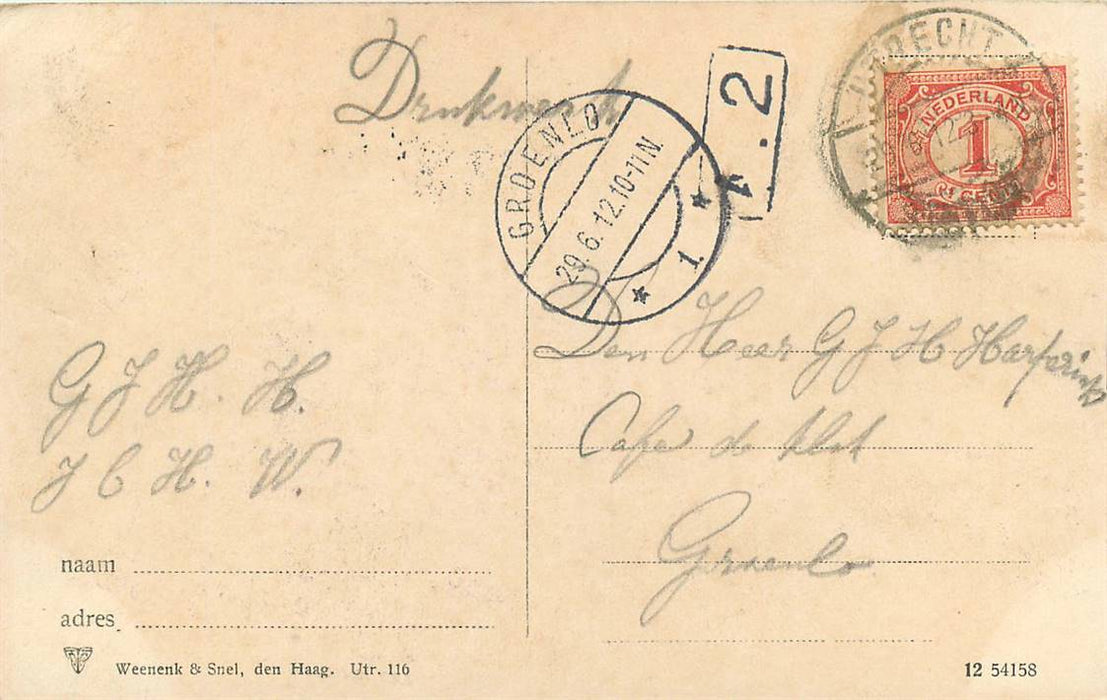 Drukwerk
GROENLO
29.6.12.10-11N
1
2
UTRECHT
NEDERLAND
1
CENT
G J H. H.
J C H. W.
Den Heer G J H Harperink
Cafe de
Groenlo
naam
adres
Weenenk & Snel, den Haag. Utr. 116
12 54158